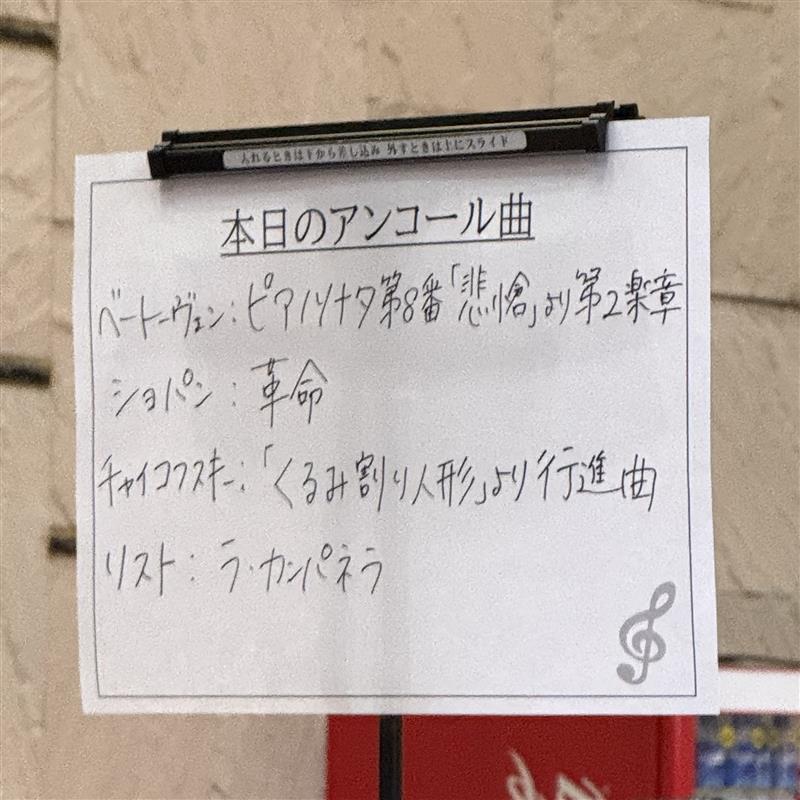 入れるときは下から差し込み 外すときは上にスライド
本日のアンコール曲
ベートーヴェン：ピアノソナタ第8番「悲愴」より第2楽章
ショパン：革命
チャイコフスキー：「くるみ割り人形」より行進曲
リスト：ラ・カンパネラ